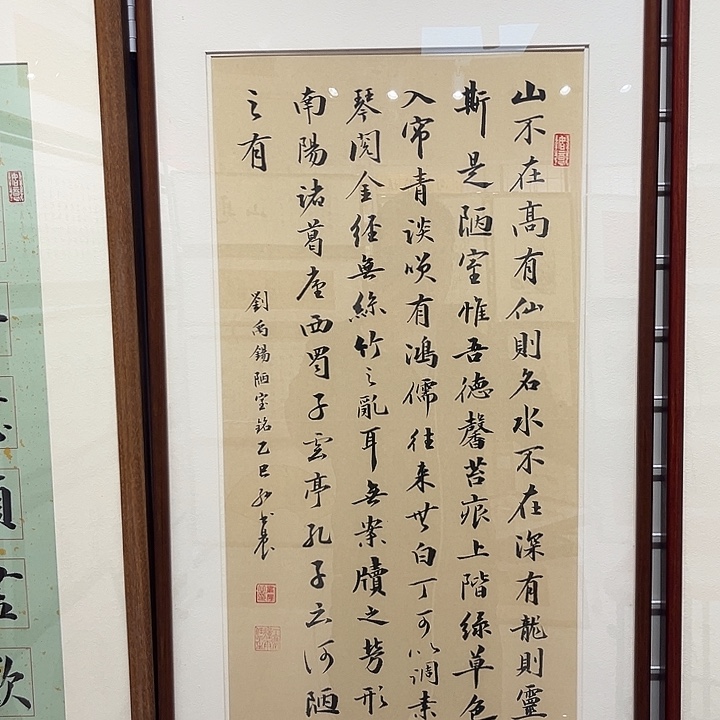 山不在髙有仙則名水不在深有龍則靈
斯是陋室惟吾德馨苔痕上階綠草色
入帘青談咲有鴻儒往来無白丁可以調素
琴閱金經無絲竹之亂耳無案牘之勞形
南陽諸葛廬西蜀子雲亭孔子云何陋
之有
劉禹錫陋室銘乙巳